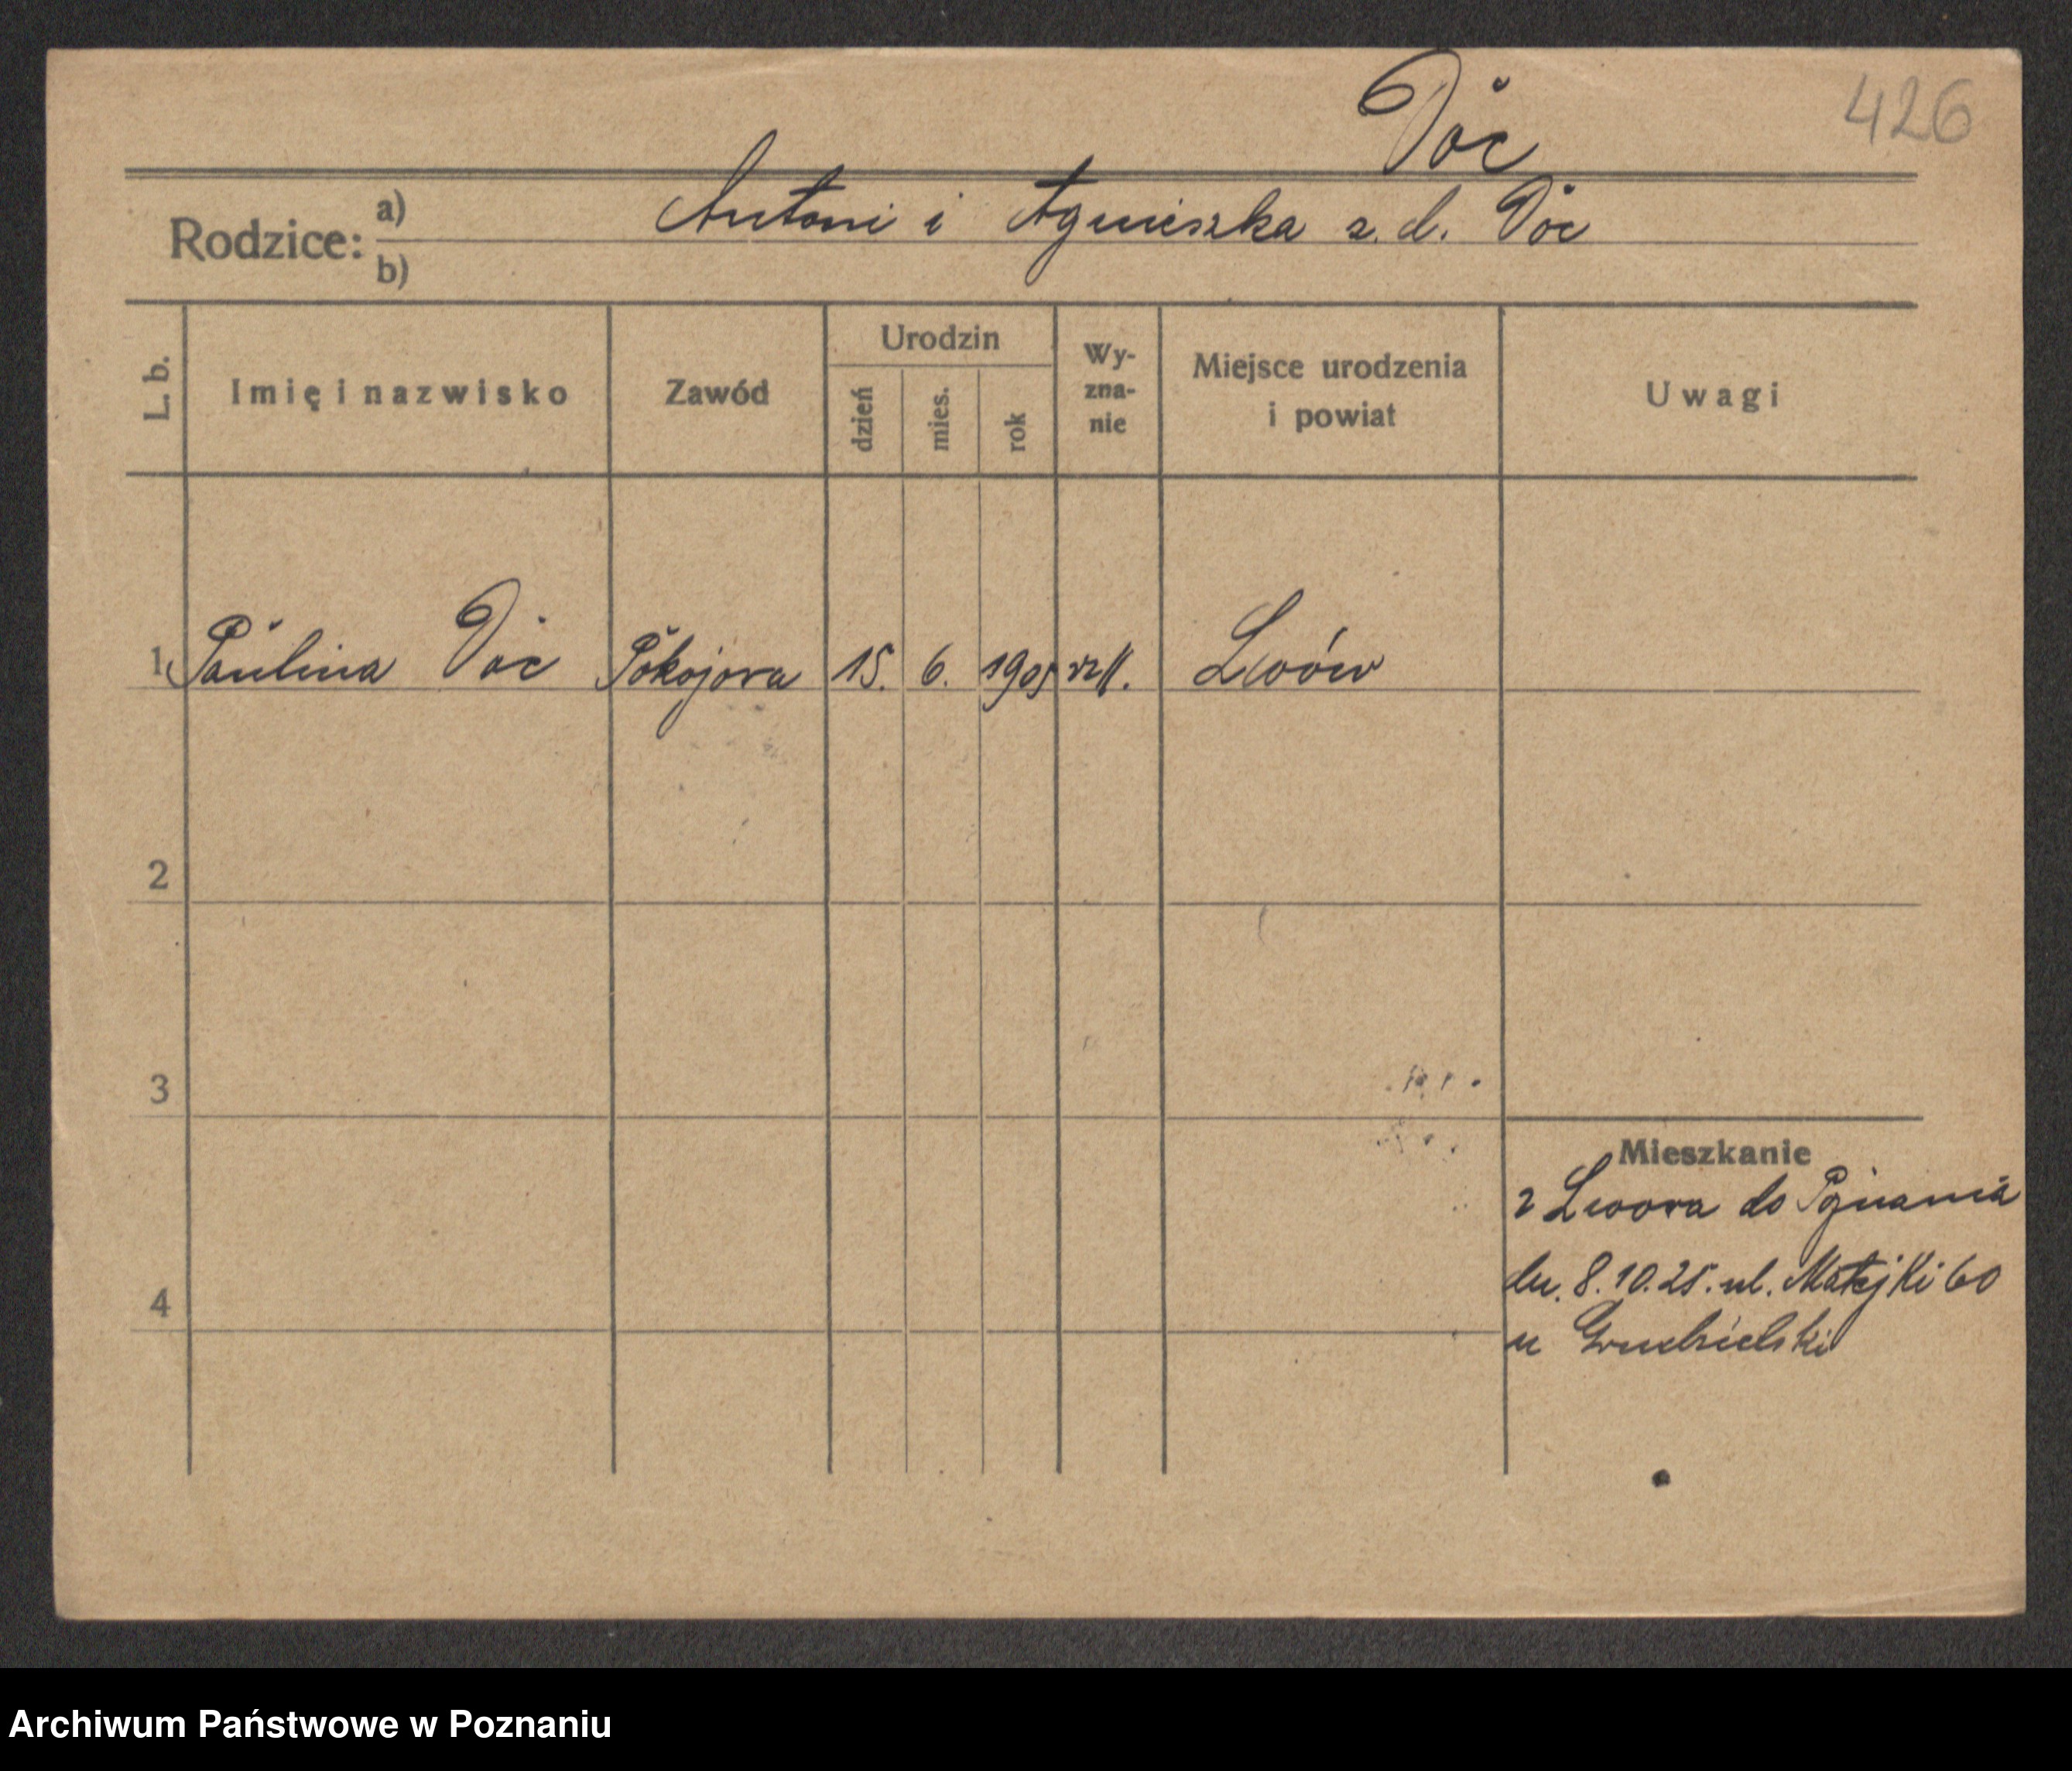 426
Voc
Rodzice: a) Antoni i Agnieszka z. d. Voc
b)
L. b. Imię i nazwisko Zawód Urodzin dzień mies. rok Wy-zna-nie Miejsce urodzenia i powiat Uwagi
1 Paulina Voc Pokojova 15. 6. 1905 Lwów
2
3
4
Mieszkanie
z Lwova do Poznania
dn. 8.10.25. ul. Matejki 60
u
Archiwum Państwowe w Poznaniu